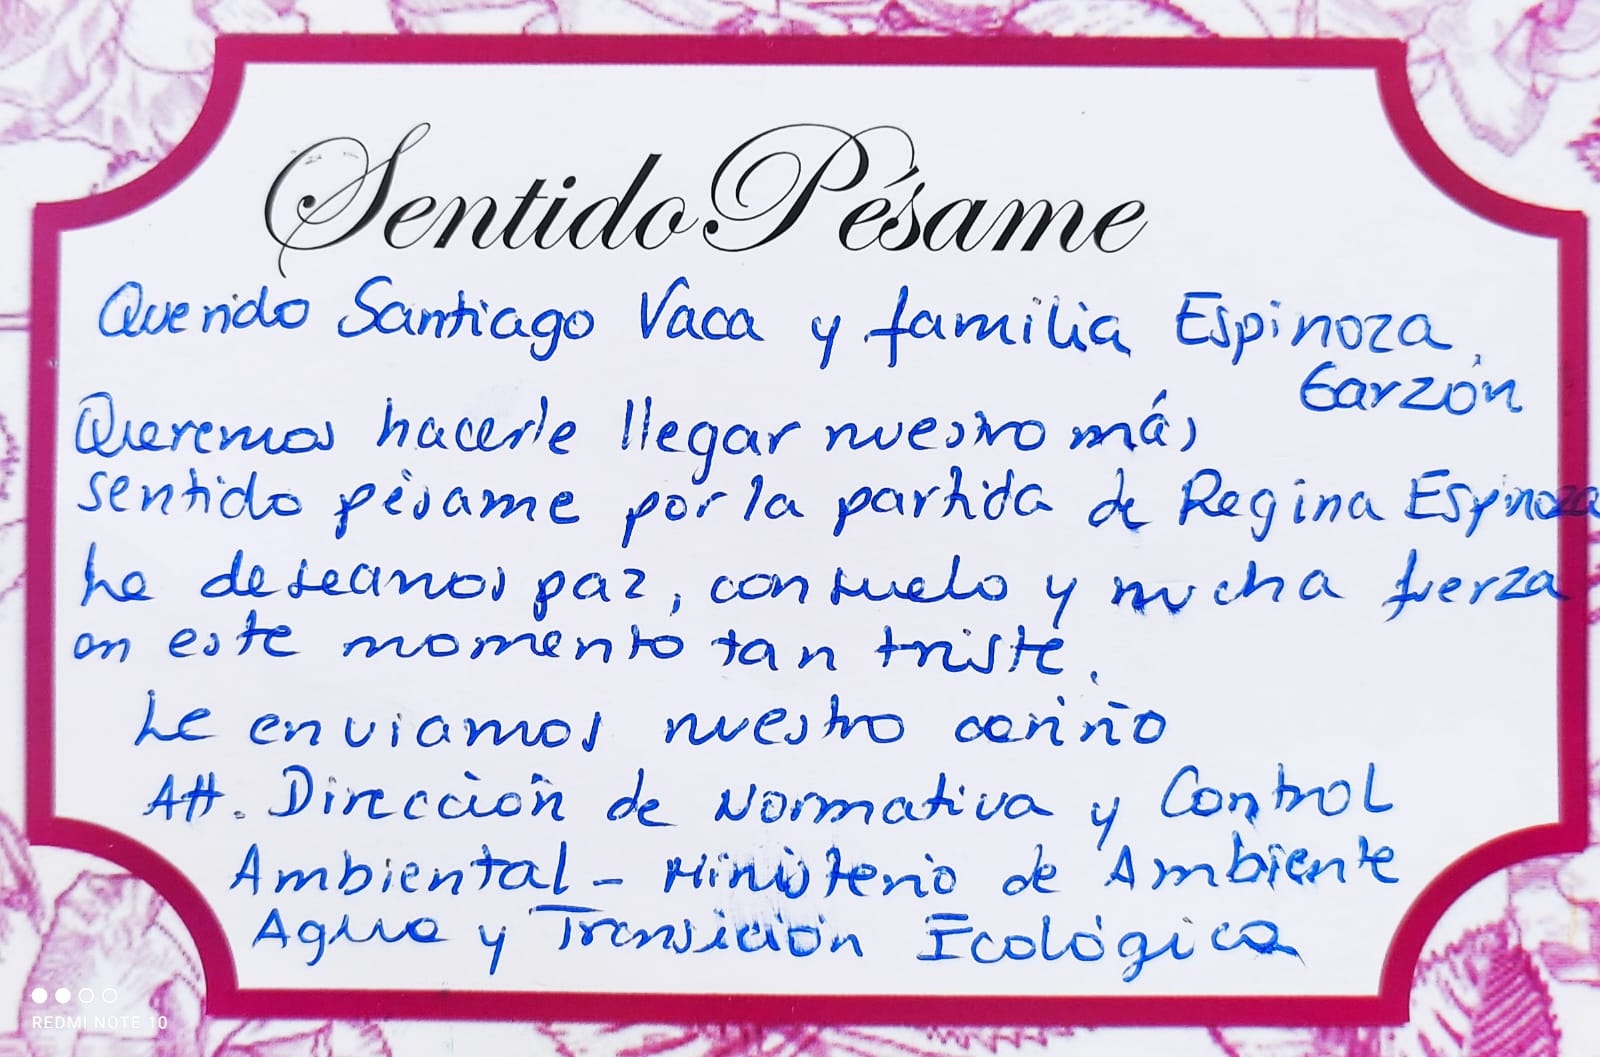 Sentido Pésame
Querido Santiago Vaca y familia Espinoza
Garzón,
Queremos hacerle llegar nuestro más
sentido pésame por la partida de Regina Espinoza
Le deseamos paz, consuelo y mucha fuerza
en este momento tan triste.
Le enviamos nuestro cariño
Att. Dirección de Normativa y Control
Ambiental - Ministerio de Ambiente
Agua y Transición Ecológica
REDMI NOTE 10